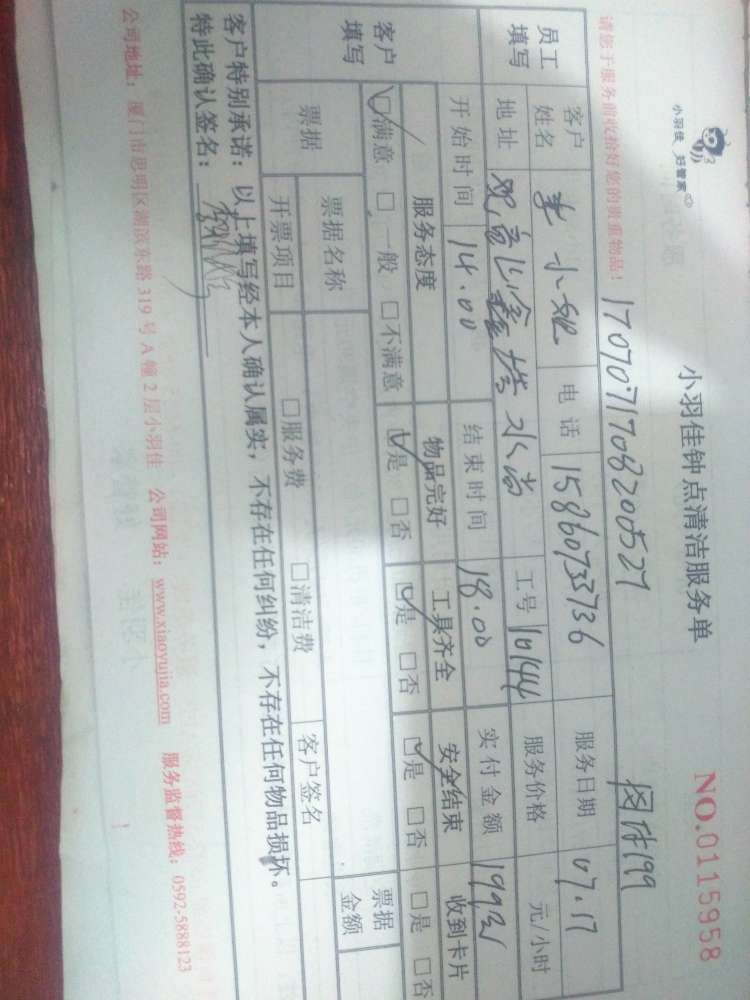 小羽佳 好管家
小羽佳钟点清洁服务单
NO.0115958
请您于服务前收拾好您的贵重物品！
1707071708200527
199
员工填写
客户姓名 李小姐 电话 15860733736 服务日期 07.17
地址 水尚 工号 10144 服务价格 元/小时
开始时间 14.00 结束时间 18.00 实付金额 199元
客户填写
服务态度 物品完好 工具齐全 安全结束 收到卡片
☑满意 □一般 □不满意 ☑是 □否 ☑是 □否 ☑是 □否 □是 □否
票据 票据名称 客户签名 票据金额
开票项目 □服务费 □清洁费
客户特别承诺：以上填写经本人确认属实，不存在任何纠纷，不存在任何物品损坏。
特此确认签名：
公司地址：厦门市思明区湖滨东路319号A幢2层小羽佳 公司网站：www.xiaoyujia.com 服务监督热线：0592-5888123